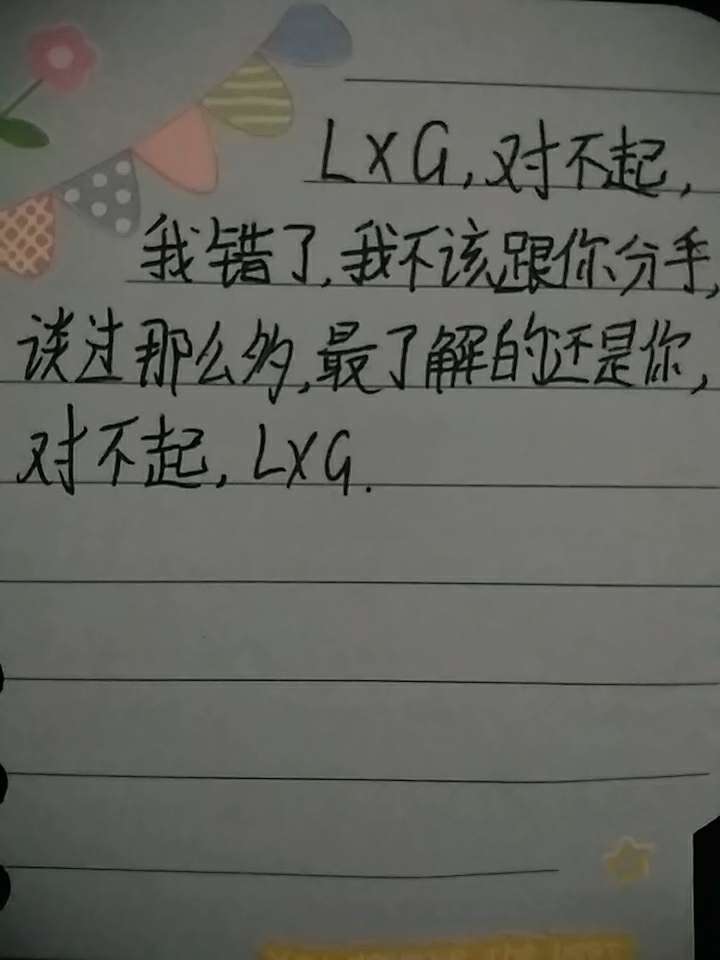 LXG,对不起,
我错了,我不该跟你分手,
谈过那么多,最了解的还是你,
对不起,LXG.